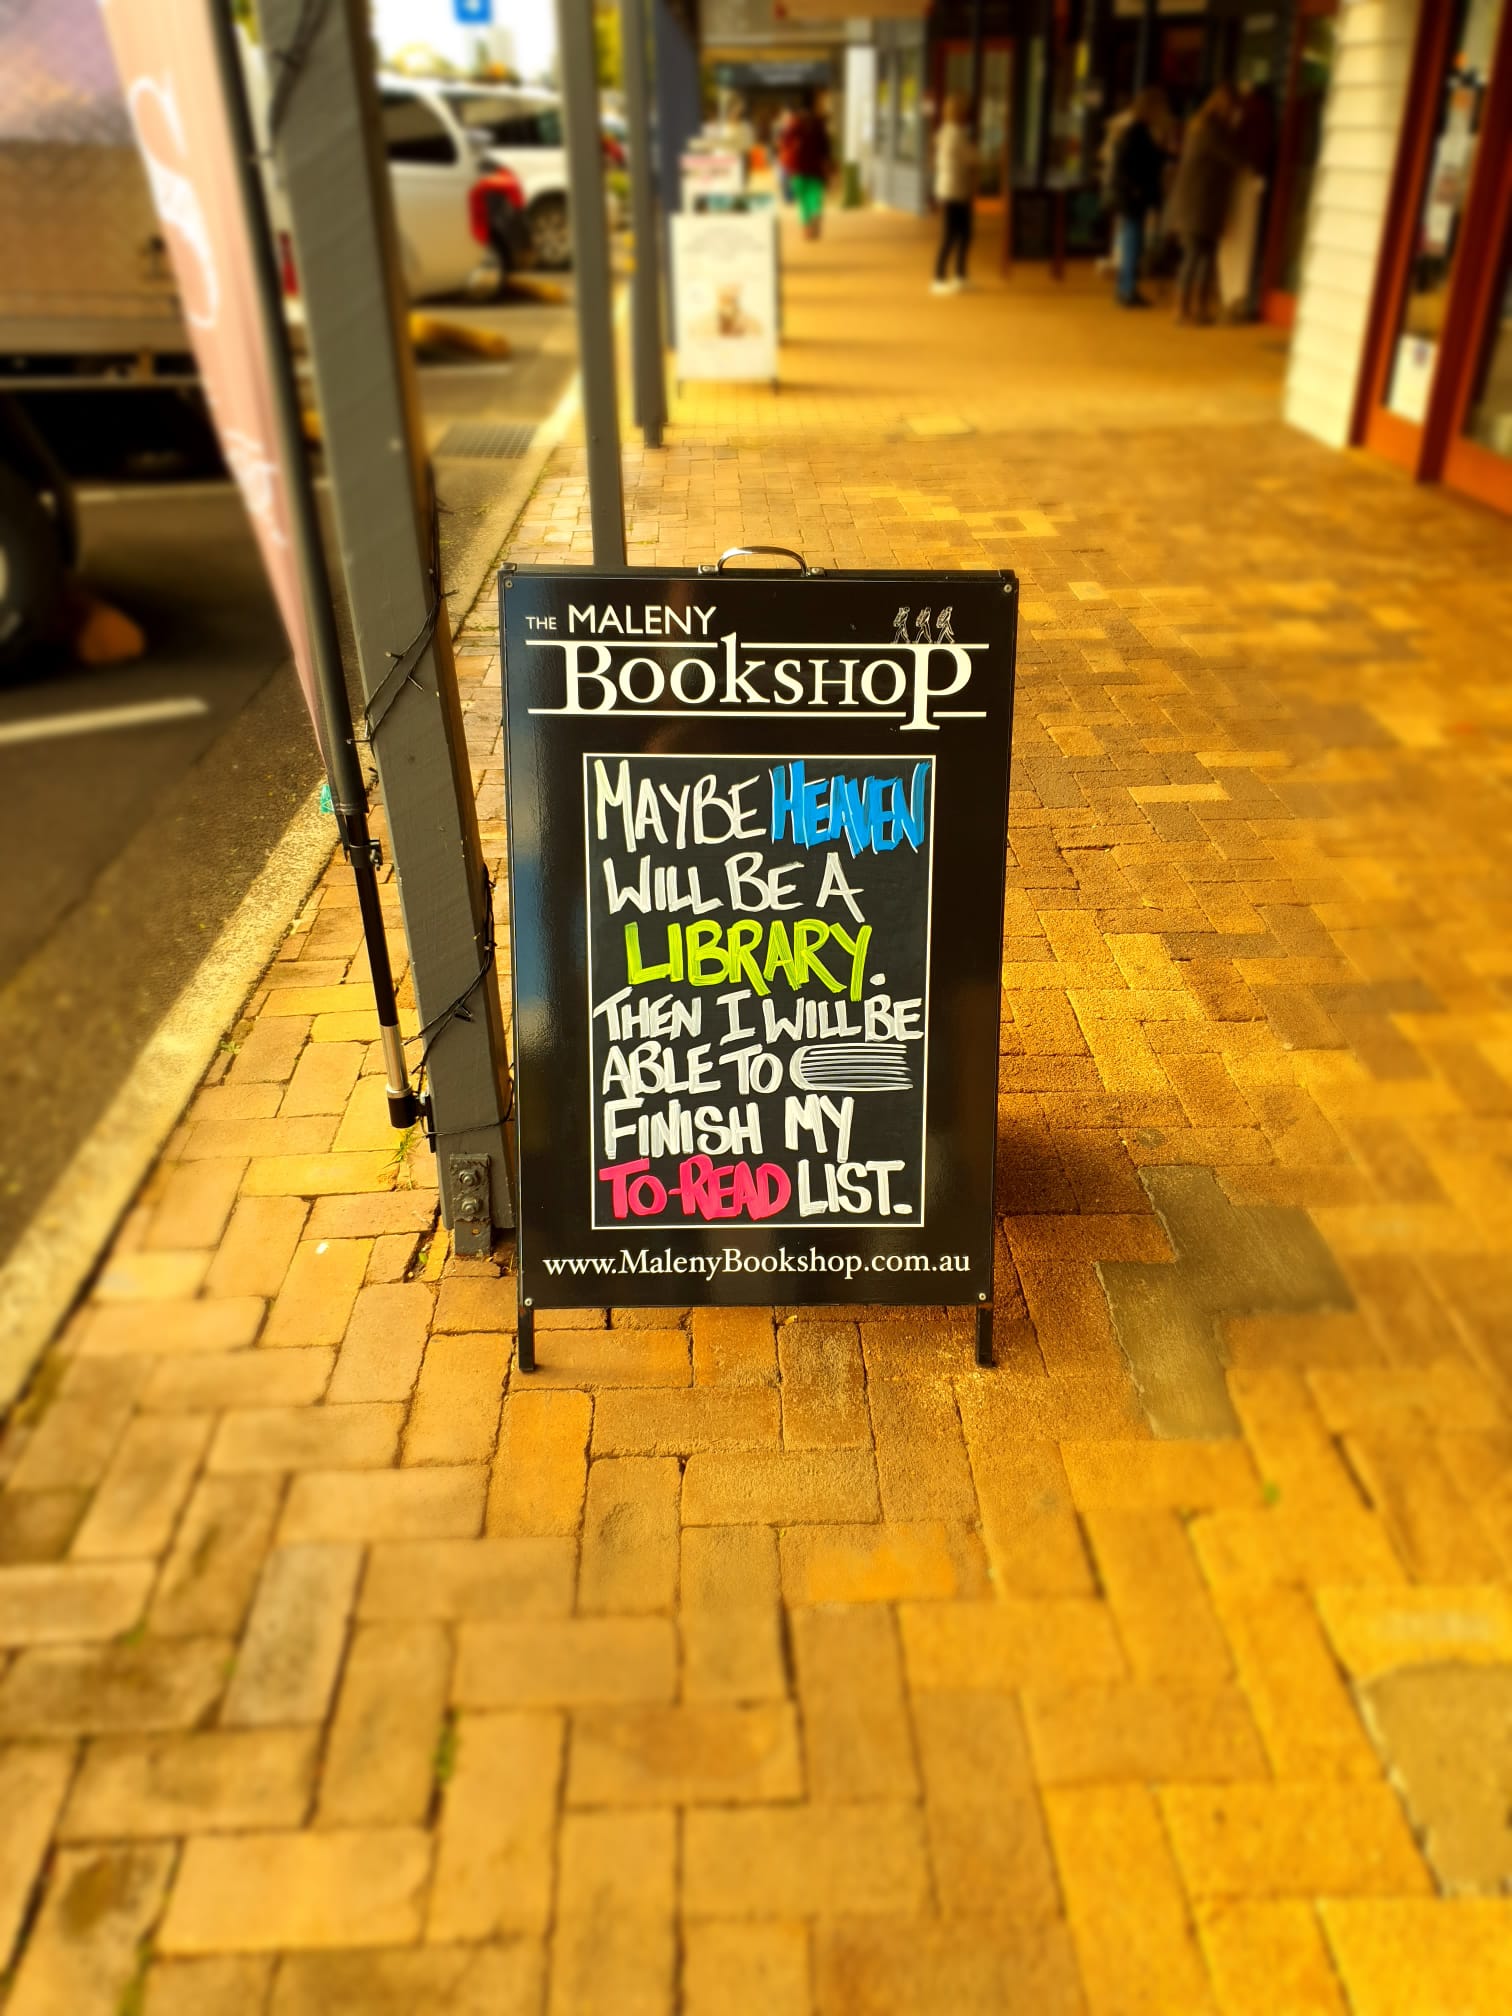 THE MALENY
BOOKSHOP
MAYBE HEAVEN
WILL BE A
LIBRARY.
THEN I WILL BE
ABLE TO
FINISH MY
TO-READ LIST.
www.MalenyBookshop.com.au